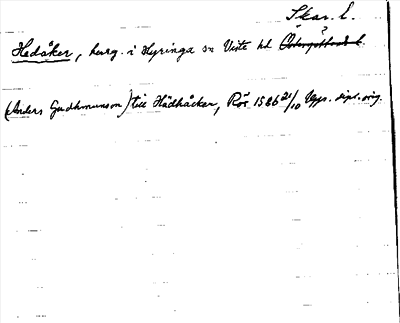 Skar. l.
Hedåker, herg. i Kyringa sn Viste hd Östergötlands l. ?
(Anders Gudhmunson) till Hädhåcker, Rör 1586 21/10 Upps. dipl. orig.